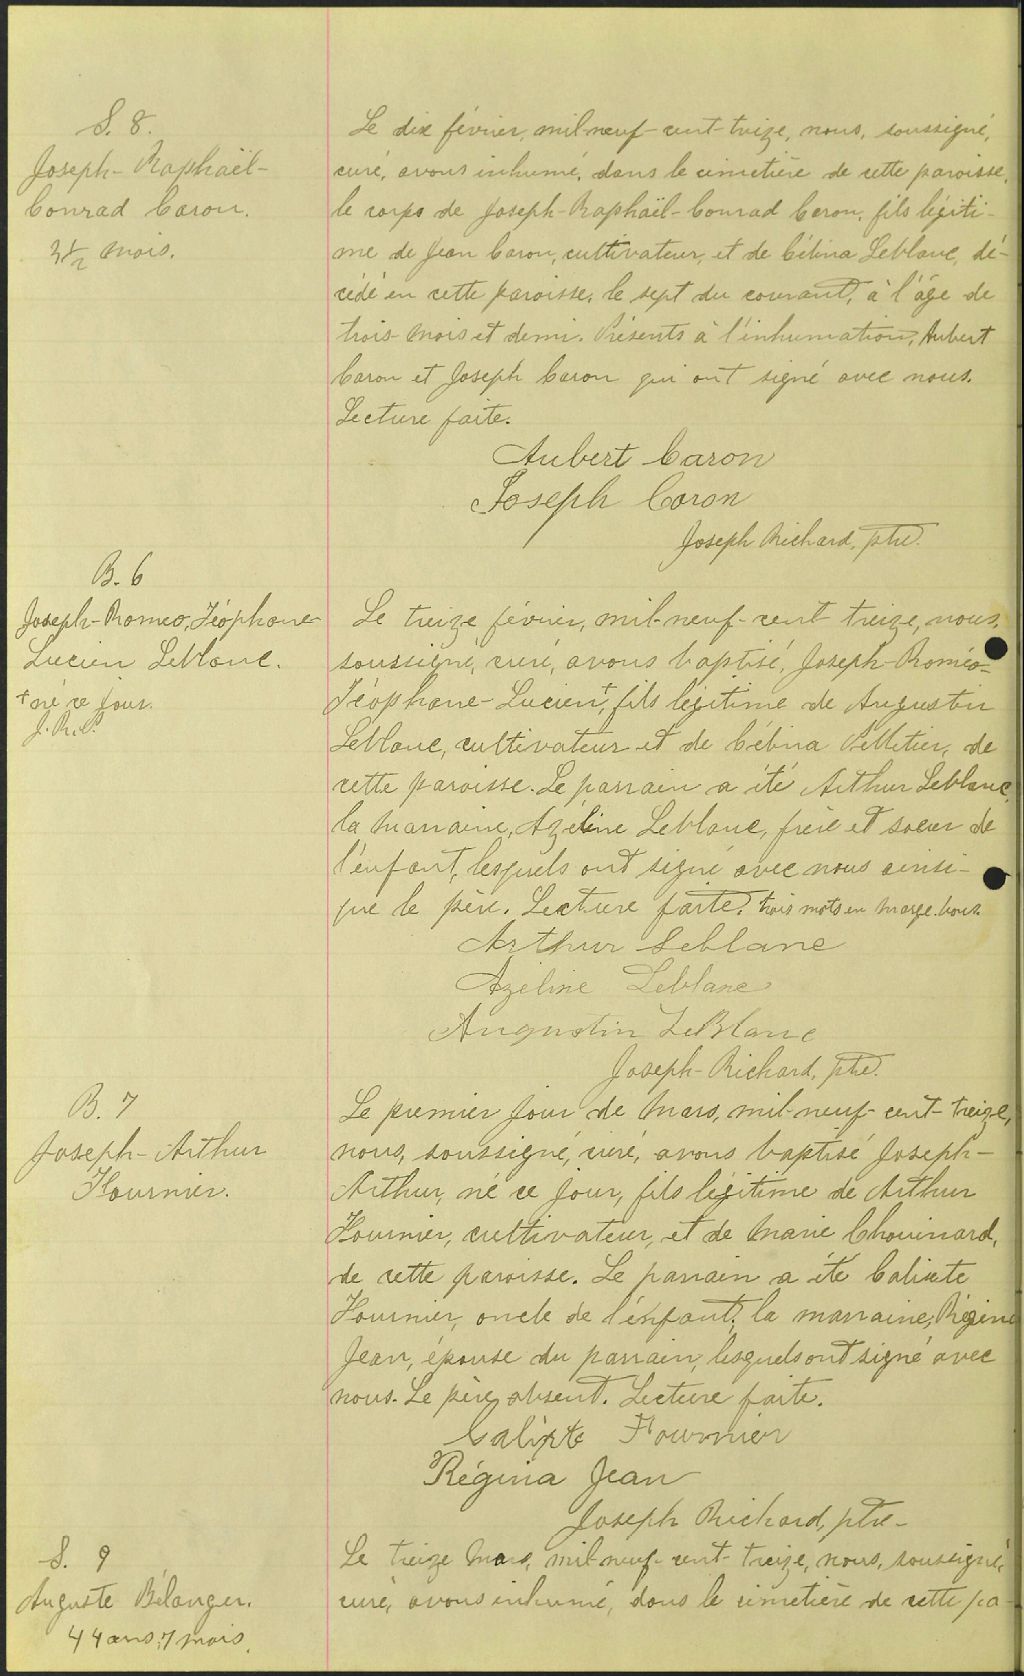 S. 8.
Joseph-Raphaël-
Conrad Caron.
3 1/2 mois.
Le dix février, mil-neuf-cent-treize, nous, soussigné,
curé, avons inhumé, dans le cimetière de cette paroisse,
le corps de Joseph-Raphaël-Conrad Caron, fils légiti-
me de Jean Caron, cultivateur, et de Célina Leblanc, dé-
cédé en cette paroisse, le sept du courant, à l'âge de
trois mois et demi. Présents à l'inhumation, Aubert
Caron et Joseph Caron qui ont signé avec nous.
Lecture faite.
Aubert Caron
Joseph Caron
Joseph Richard, ptre.
B. 6
Joseph-Romeo, Téophane
Lucien Leblanc.
+ né ce jour.
J. R. P.
Le treize février, mil-neuf-cent treize, nous,
soussigné, curé, avons baptisé, Joseph-Roméo-
Téophane-Lucien+, fils légitime de Augustin
Leblanc, cultivateur et de Célina Pelletier, de
cette paroisse. Le parrain a été Arthur Leblanc,
la marraine, Azéline Leblanc, frère et soeur de
l'enfant, lesquels ont signé avec nous ainsi-
que le père. Lecture faite. trois mots en marge bons.
Arthur Leblanc
Azéline Leblanc
Augustin LeBlanc
Joseph-Richard, ptre.
B. 7
Joseph-Arthur
Fournier.
Le premier jour de Mars, mil-neuf-cent-treize,
nous, soussigné, curé, avons baptisé Joseph-
Arthur, né ce jour, fils légitime de Arthur
Fournier, cultivateur, et de Marie Chouinard,
de cette paroisse. Le parrain a été Calixte
Fournier, oncle de l'enfant; la marraine, Régina
Jean, épouse du parrain, lesquels ont signé avec
nous. Le père absent. Lecture faite.
Calixte Fournier
Régina Jean
Joseph Richard, ptre-
S. 9
Auguste Bélanger.
44 ans, 7 mois.
Le treize Mars, mil-neuf-cent-treize, nous, soussigné,
curé, avons inhumé, dans le cimetière de cette pa-